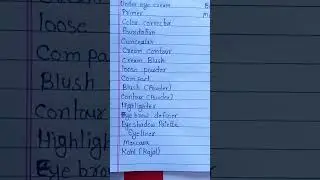 Under eye cream
Primer
Color corrector
Foundation
Concealer
Cream contour
Cream Blush
loose powder
Compact
Blush (Powder)
Contour (Powder)
Highlighter
Eyebrow definer
Eyeshadow Palette
Eyeliner
Mascara
Kohl (Kajal)
loose
Compact
Blush
Contour
Highlight
Eye bro